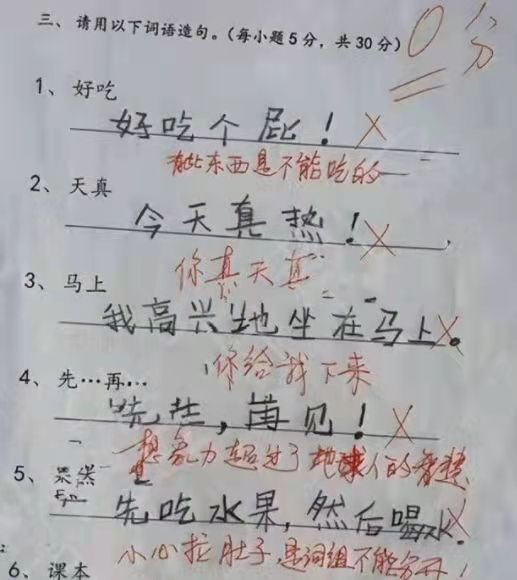 三、请用以下词语造句。（每小题5分，共30分）0分
1、好吃
好吃个屁！
有些东西是不能吃的
2、天真
今天真热！
你真天真
3、马上
我高兴地坐在马上。
你给我下来
4、先…再…
先生，再见！
想象力超过了地球人的智慧
5、果
先吃水果，然后喝水。
小心拉肚子，是词组不能分开！
6、课本